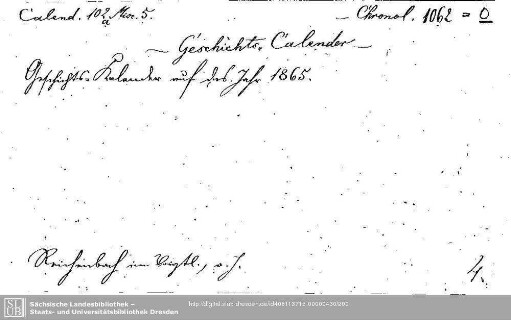 Calend. 102a Misc. 5.
— Chronol. 1062 = 0
— Geschichts-Calender —
Geschichts-Kalender auf das Jahr 1865.
Reichenbach im Voigtl., o. J.
4.
SLUB
Sächsische Landesbibliothek –
Staats- und Universitätsbibliothek Dresden